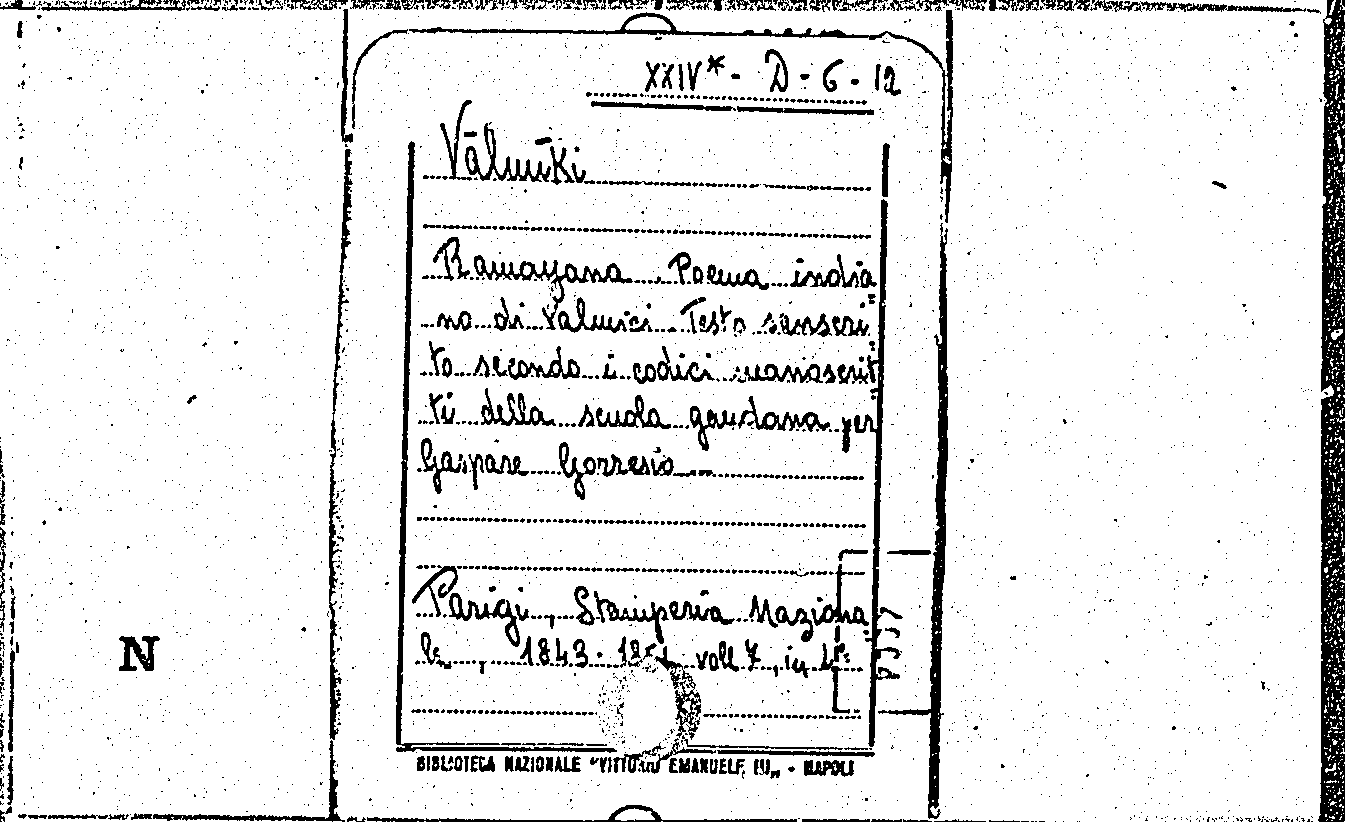 XXIV* - D - 6 - 12
Vālmīki
Ramayana. Poema india
no di Valmici. Testo sanscri
to secondo i codici manoscrit
ti della scuola gaudana per
Gaspare Gorresio
Parigi, Stamperia Naziona
le, 1843-185 voll 7, in
N
BIBLIOTECA NAZIONALE "VITTORIO EMANUELE III„ - NAPOLI